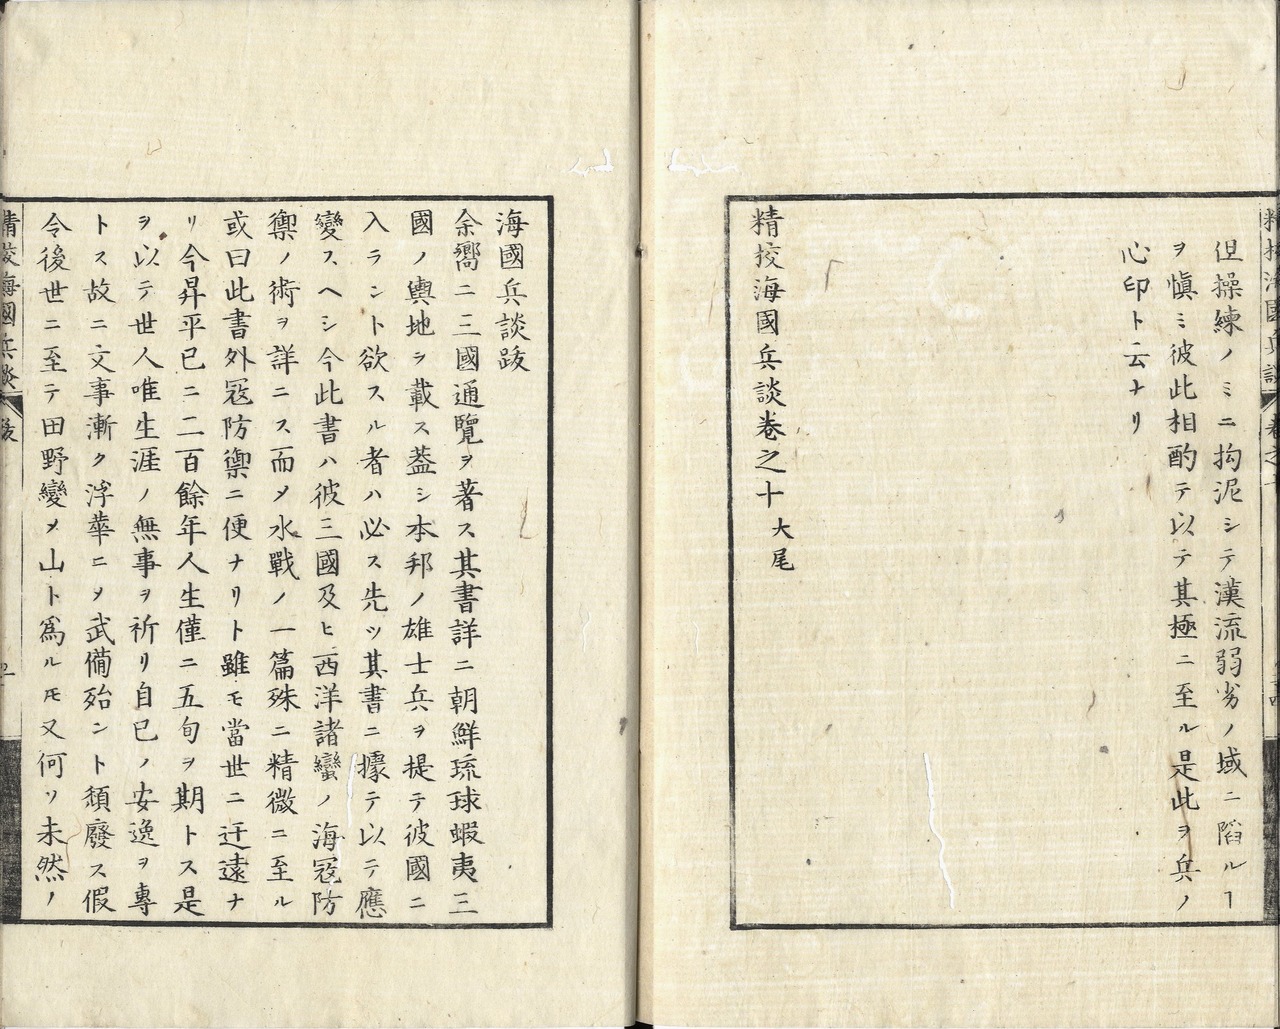 但操練ノミニ拘泥シテ漢流弱劣ノ域ニ陷ルヿ
ヲ愼ミ彼此相酌テ以テ其極ニ至ル是此ヲ兵ノ
心印ト云ナリ
精挍海國兵談卷之十大尾
海國兵談跋
余嚮ニ三國通覽ヲ著ス其書詳ニ朝鮮琉球蝦夷三
國ノ輿地ヲ載ス蓋シ本邦ノ雄士兵ヲ提テ彼國ニ
入ラント欲スル者ハ必ス先ツ其書ニ據テ以テ應
變スヘシ今此書ハ彼三國及ヒ西洋諸蠻ノ海冦防
禦ノ術ヲ詳ニス而メ水戰ノ一篇殊ニ精微ニ至ル
或曰此書外冦防禦ニ便ナリト雖モ當世ニ迂遠ナ
リ今昇平已ニ二百餘年人生僅ニ五旬ヲ期トス是
ヲ以テ世人唯生涯ノ無事ヲ祈リ自已ノ安逸ヲ專
トス故ニ文事漸ク浮華ニメ武備殆ント頽廢ス假
令後世ニ至テ田野變メ山ト爲ルモ又何ソ未然ノ
精挍海國兵談